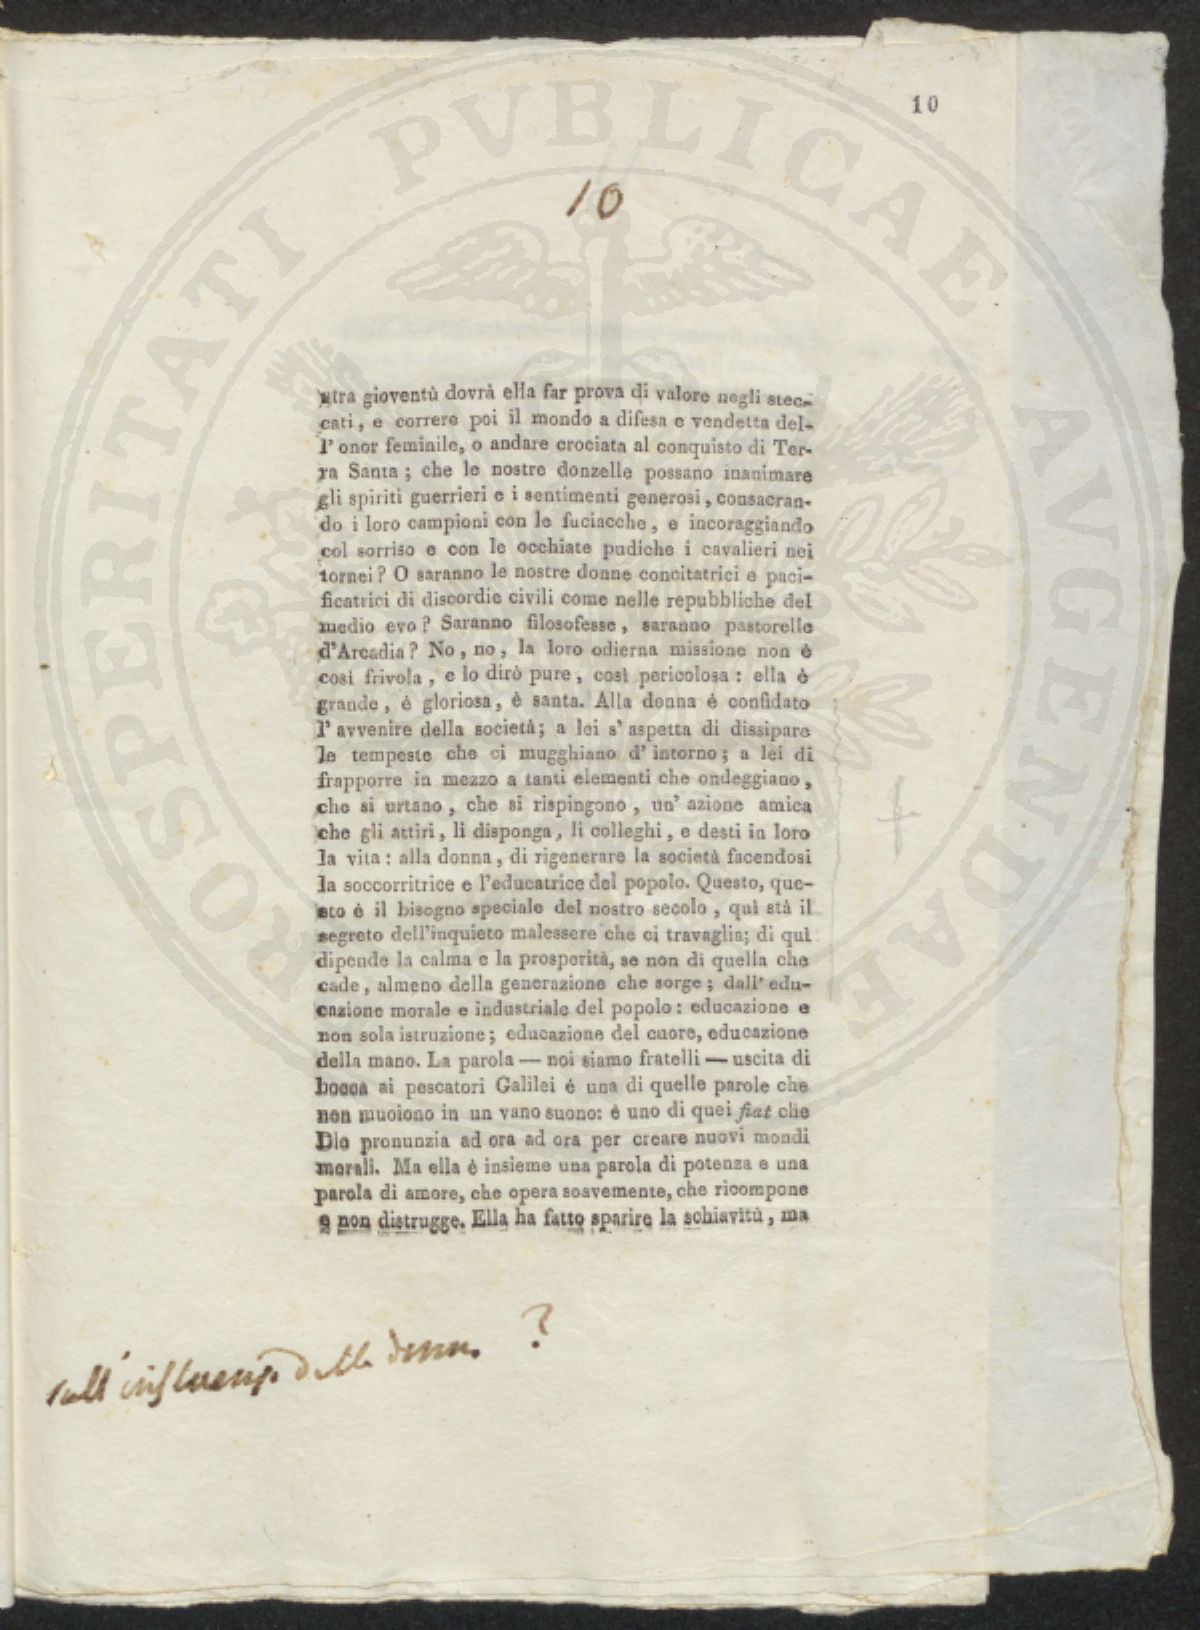 10
10
PROSPERITATI PVBLICAE AVGENDAE
stra gioventù dovrà ella far prova di valore negli stec-
cati, e correre poi il mondo a difesa e vendetta del-
l'onor feminile, o andare crociata al conquisto di Ter-
ra Santa; che le nostre donzelle possano inanimare
gli spiriti guerrieri e i sentimenti generosi, consacran-
do i loro campioni con le fuciacche, e incoraggiando
col sorriso e con le occhiate pudiche i cavalieri nei
tornei? O saranno le nostre donne concitatrici e paci-
ficatrici di discordie civili come nelle repubbliche del
medio evo? Saranno filosofesse, saranno pastorelle
d'Arcadia? No, no, la loro odierna missione non è
così frivola, e lo dirò pure, così pericolosa: ella è
grande, è gloriosa, è santa. Alla donna è confidato
l'avvenire della società; a lei s'aspetta di dissipare
le tempeste che ci mugghiano d'intorno; a lei di
frapporre in mezzo a tanti elementi che ondeggiano,
che si urtano, che si rispingono, un'azione amica
che gli attiri, li disponga, li colleghi, e desti in loro
la vita: alla donna, di rigenerare la società facendosi
la soccorritrice e l'educatrice del popolo. Questo, que-
sto è il bisogno speciale del nostro secolo, quì stà il
segreto dell'inquieto malessere che ci travaglia; di quì
dipende la calma e la prosperità, se non di quella che
cade, almeno della generazione che sorge; dall'edu-
cazione morale e industriale del popolo: educazione e
non sola istruzione; educazione del cuore, educazione
della mano. La parola — noi siamo fratelli — uscita di
bocca ai pescatori Galilei è una di quelle parole che
non muoiono in un vano suono: è uno di quei fiat che
Dio pronunzia ad ora ad ora per creare nuovi mondi
morali. Ma ella è insieme una parola di potenza e una
parola di amore, che opera soavemente, che ricompone
e non distrugge. Ella ha fatto sparire la schiavitù, ma
sull'influenza delle donne ?